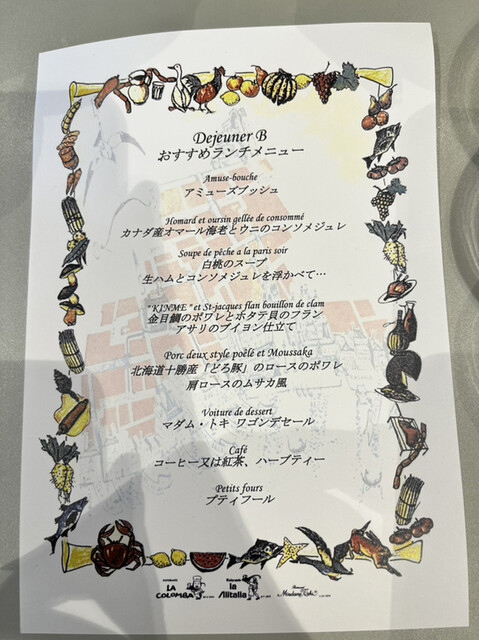 Dejeuner B
おすすめランチメニュー
Amuse-bouche
アミューズブッシュ
Homard et oursin gellée de consommé
カナダ産オマール海老とウニのコンソメジュレ
Soupe de pêche a la paris soir
白桃のスープ
生ハムとコンソメジュレを浮かべて…
"KINME" et St-jacques flan bouillon de clam
金目鯛のポワレとホタテ貝のフラン
アサリのブイヨン仕立て
Porc deux style poêlé et Moussaka
北海道十勝産「どろ豚」のロースのポワレ
肩ロースのムサカ風
Voiture de dessert
マダム・トキ ワゴンデセール
Café
コーヒー又は紅茶、ハーブティー
Petits fours
プティフール
LA COLOMBA
la Alitalia
Madame Toki